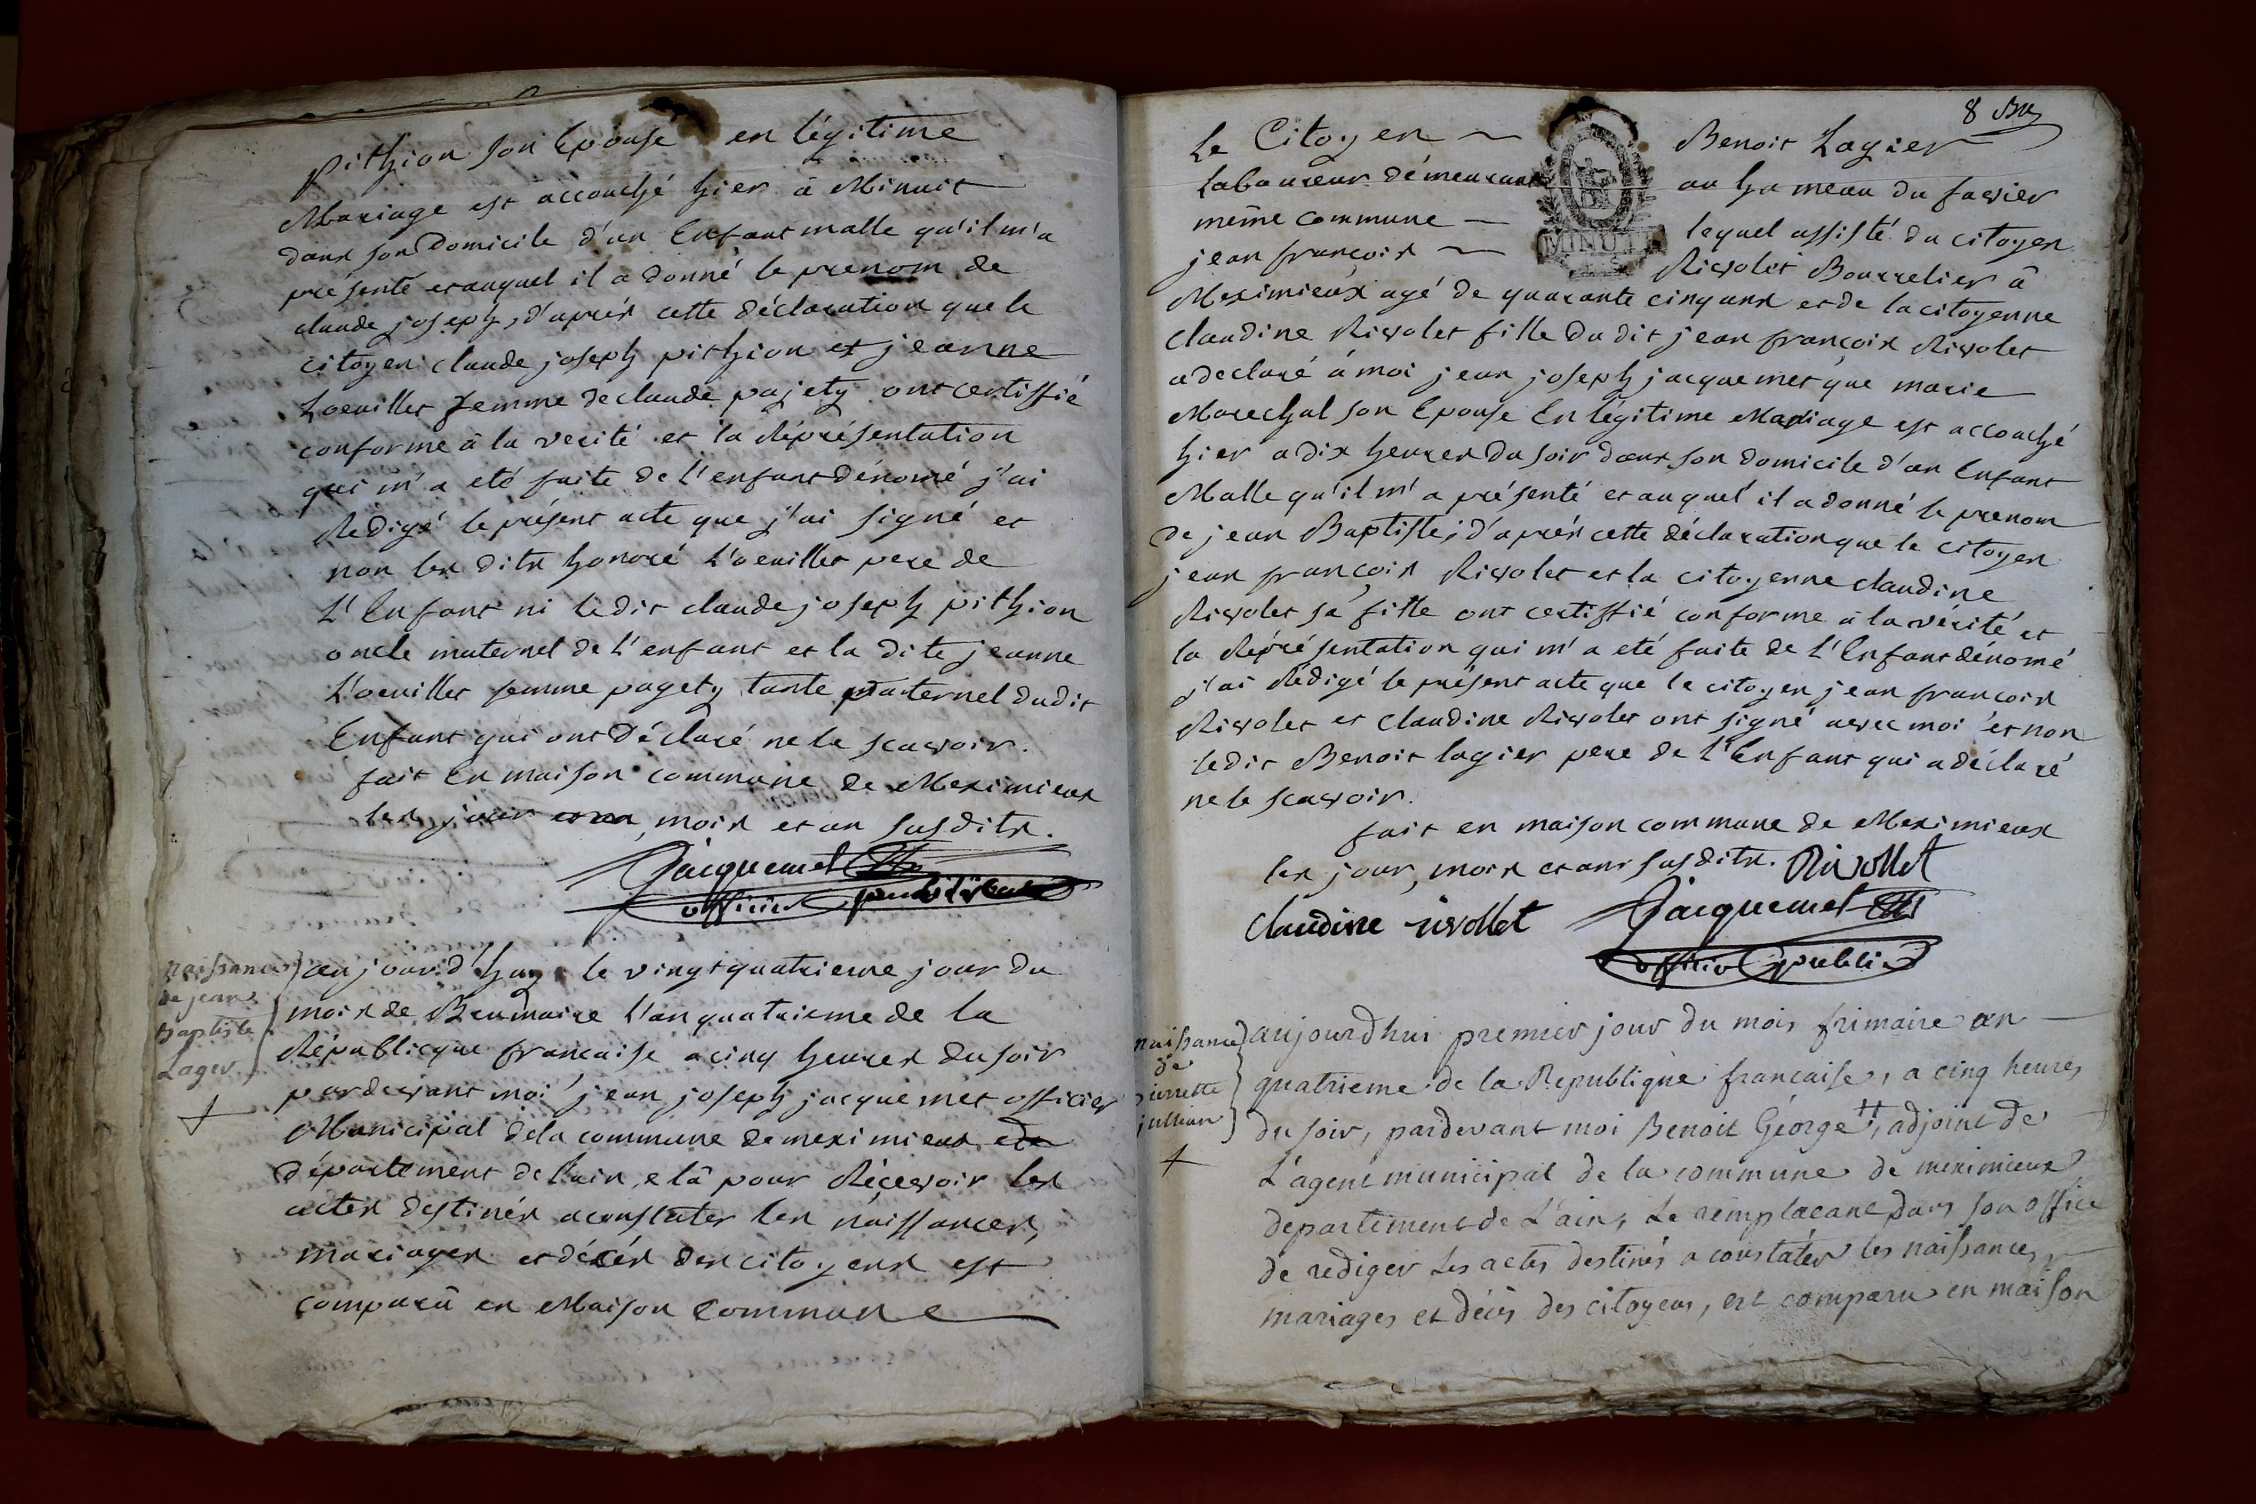 pithion son Epouse en légitime
Mariage est accouché hier à Minuit
dans son Domicile d'un Enfant malle qu'il m'a
présenté et auquel il a donné le prenom de
claude joseph, d'aprés cette déclaration que le
citoyen claude joseph pithion et jeanne
Loeuillet femme de claude pajety ont certiffié
conforme à la verité et la Réprésentation
qui m'a eté faite de l'enfant dénomé j'ai
Redigé le présent acte que j'ai signé et
non les dits honoré L'oeuillet pere de
L'Enfant ni ledit claude joseph pithion
oncle maternel de L'enfant et la dite jeanne
L'oeuillet femme pagety tante paternel dudit
Enfant qui ont Déclaré ne le scavoir.
fait En maison commune de Meximieux
les jour moix et an susdits.
Jacquemet
officier public
naissance
de jean
Baptiste
Lager
aujourd'huy le vingt quatrieme jour du
moix de Brumaire L'an quatrieme de la
Républicque francaise a cinq heures du soir
pardevant moi jean joseph jacquemet officier
Municipal dela commune de meximieux
département de l'ain, elû pour Récevoir les
actes destinés aconstater les naissances,
mariages et décés des citoyens est
comparû en Maison Commune
8
Le Citoyen Benoit Lagier
Laboureur démeurant au hameau du favier
même commune lequel assisté du citoyen
jean françois Rivolet Bourrelier à
MINUTE
Meximieux agé de quarante cinq ans et de la citoyenne
Claudine Rivolet fille du dit jean françois Rivolet
a declaré à moi jean joseph jacquemet que marie
Marechal son Epouse En légitime Mariage est accouché
hier a dix heures du soir dans son domicile d'un Enfant
Malle qu'il m'a présenté et auquel il a donné le prenom
de jean Baptiste; d'aprés cette déclaration que le citoyen
jean françois Rivolet et la citoyenne claudine
Rivolet sa fille ont certiffié conforme à la vérité et
la Réprésentation qui m'a eté faite de L'Enfant dénomé
j'ai Rédigé le présent acte que le citoyen jean francois
Rivolet et Claudine Rivolet ont signé avec moi et non
ledit Benoit lagier pere de L'Enfant qui a déclaré
ne le scavoir.
fait en maison commune de Meximieux
les jour, moix et an susdits. Rivollet
claudine rivollet Jacquemet
officier public
naissance
de
pierrette
jullian
aujourdhui premier jour du mois frimaire an
quatrieme de la Republique francaise, a cinq heures
du soir, pardevant moi Benoit George, adjoint de
L'agent municipal de la commune de meximieux
departement de L'ain, Le remplacant dans son office
de rediger Les actes destinés a constater les naissances,
mariages et décès des citoyens, est comparu en maison